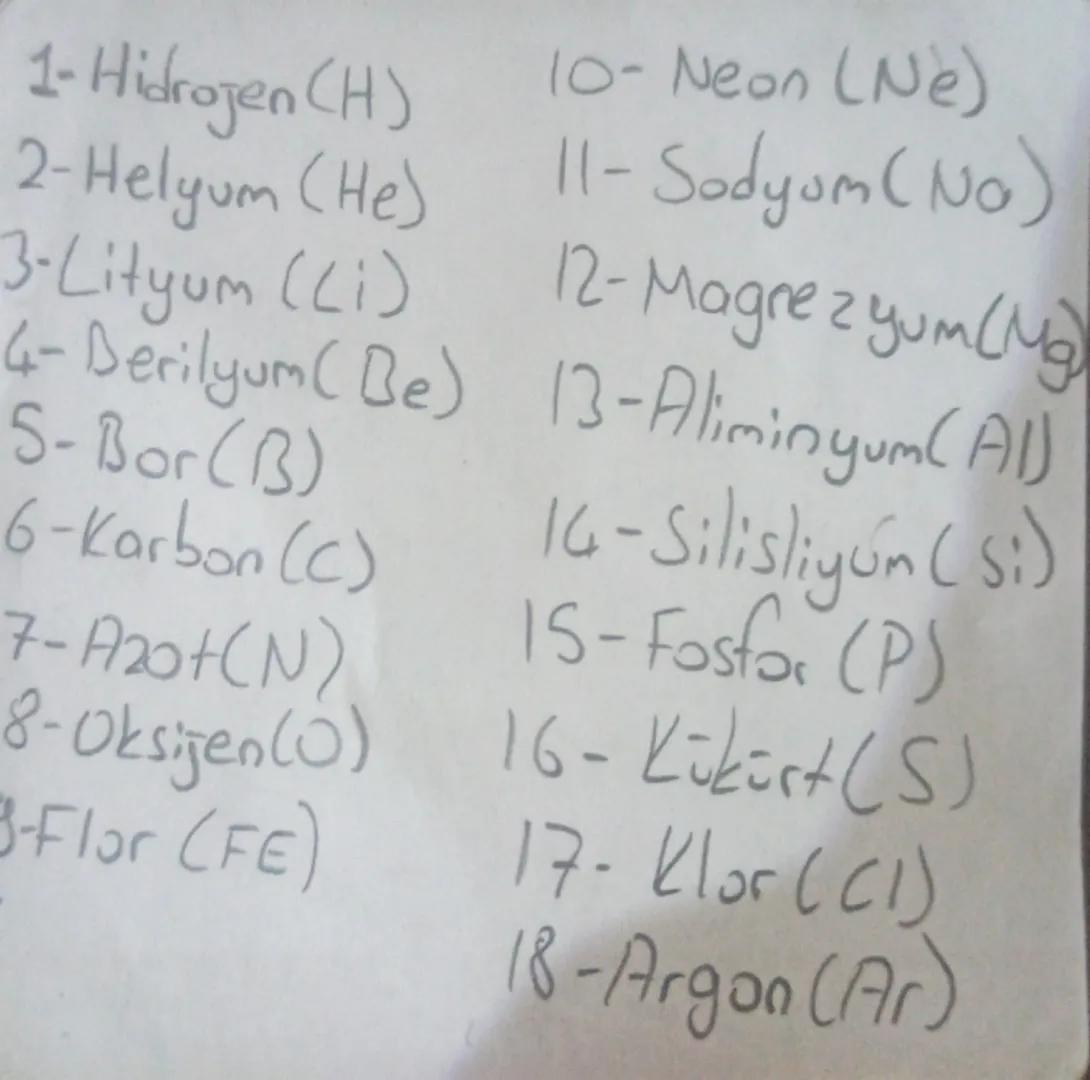 1- Hidrojen (H)
2- Helyum (He)
3- Lityum (Li)
4- Berilyum (Be)
5- Bor (B)
6- Karbon (C)
7- Azot (N)
8- Oksijen (O)
9- Flor (FE)
10- Neon (Ne)
11- Sodyum (Na)
12- Magnezyum (Mg)
13- Aliminyum (Al)
14- Silisliyum (Si)
15- Fosfor (P)
16- Kükürt (S)
17- Klor (Cl)
18- Argon (Ar)